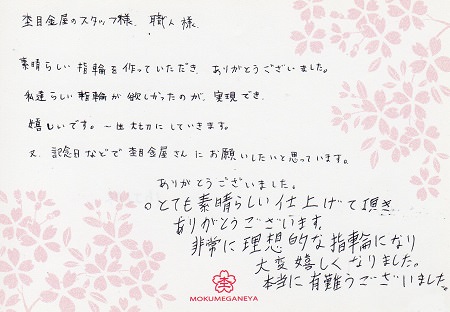 杢目金屋のスタッフ様、職人様、
素晴らしい指輪を作っていただき、ありがとうございました。
私達らしい指輪が欲しかったのが、実現でき、
嬉しいです。一生大切にしていきます。
又、記念日などで杢目金屋さんにお願いしたいと思っています。
ありがとうございました。
○とても素晴らしい仕上げて頂き
ありがとうございます。
非常に理想的な指輪になり
大変嬉しくなりました。
本当に有難うございました。
MOKUMEGANEYA